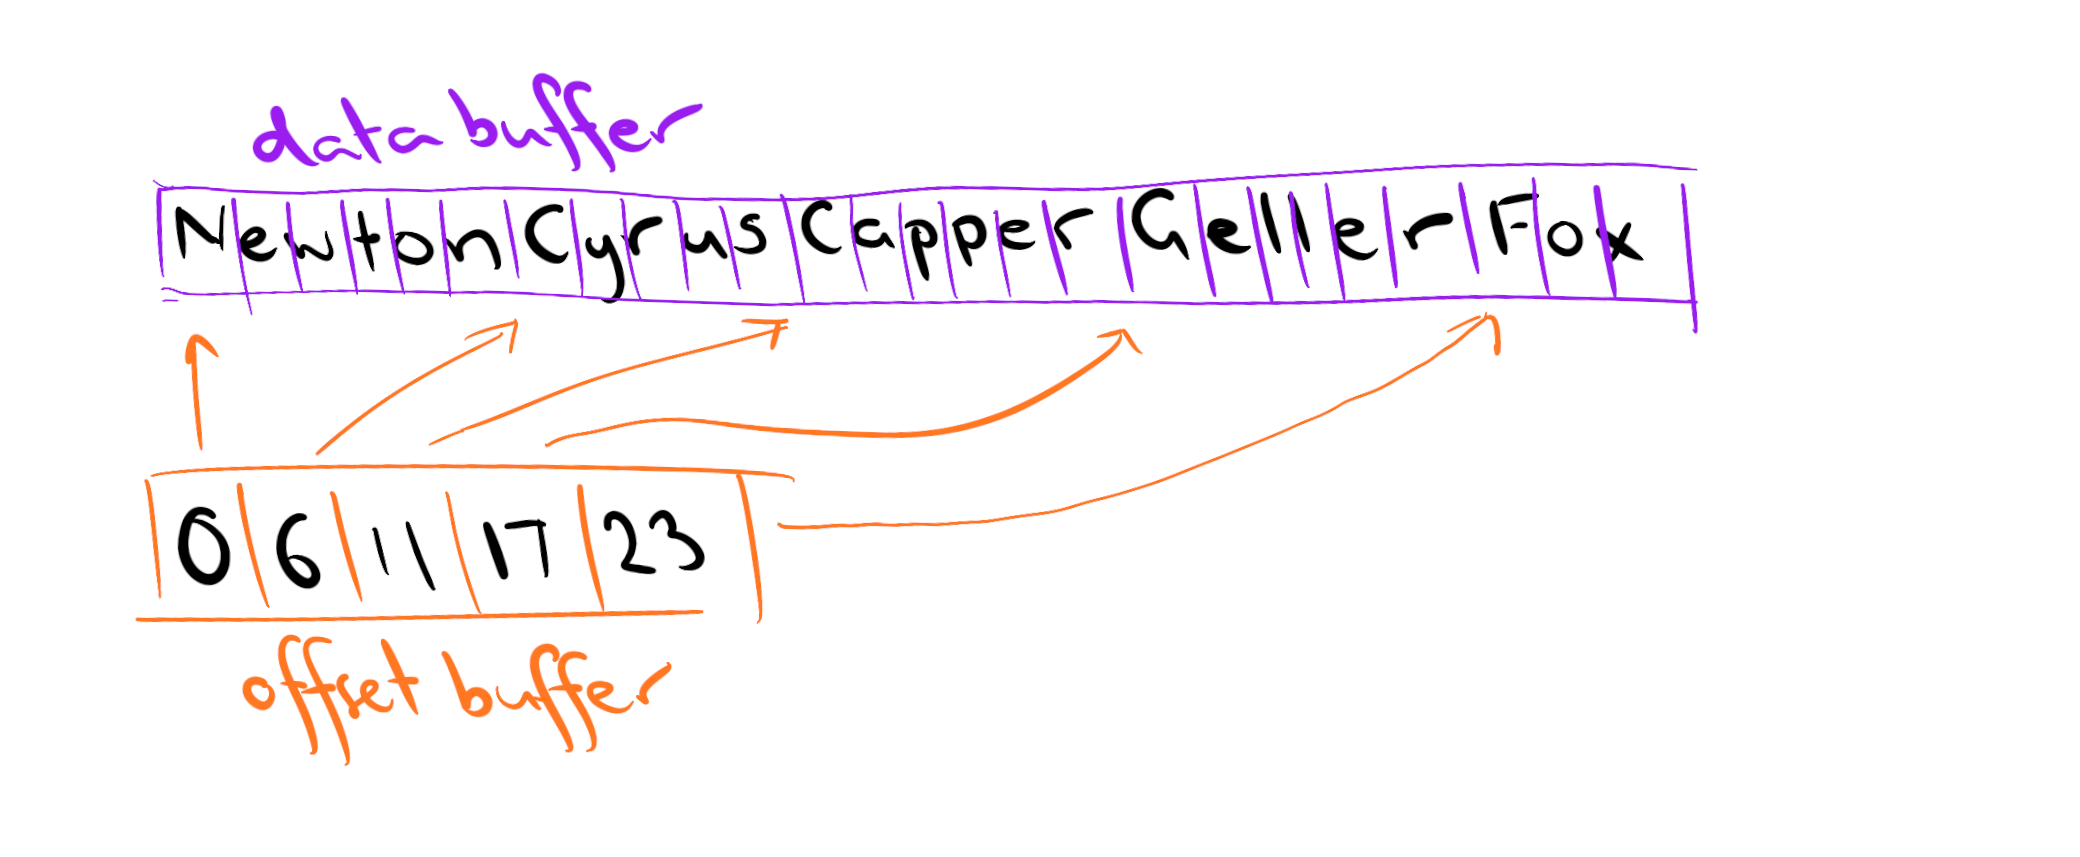 data buffer
NewtonCyrusCapperGellerFox
0 6 11 17 23
offset buffer